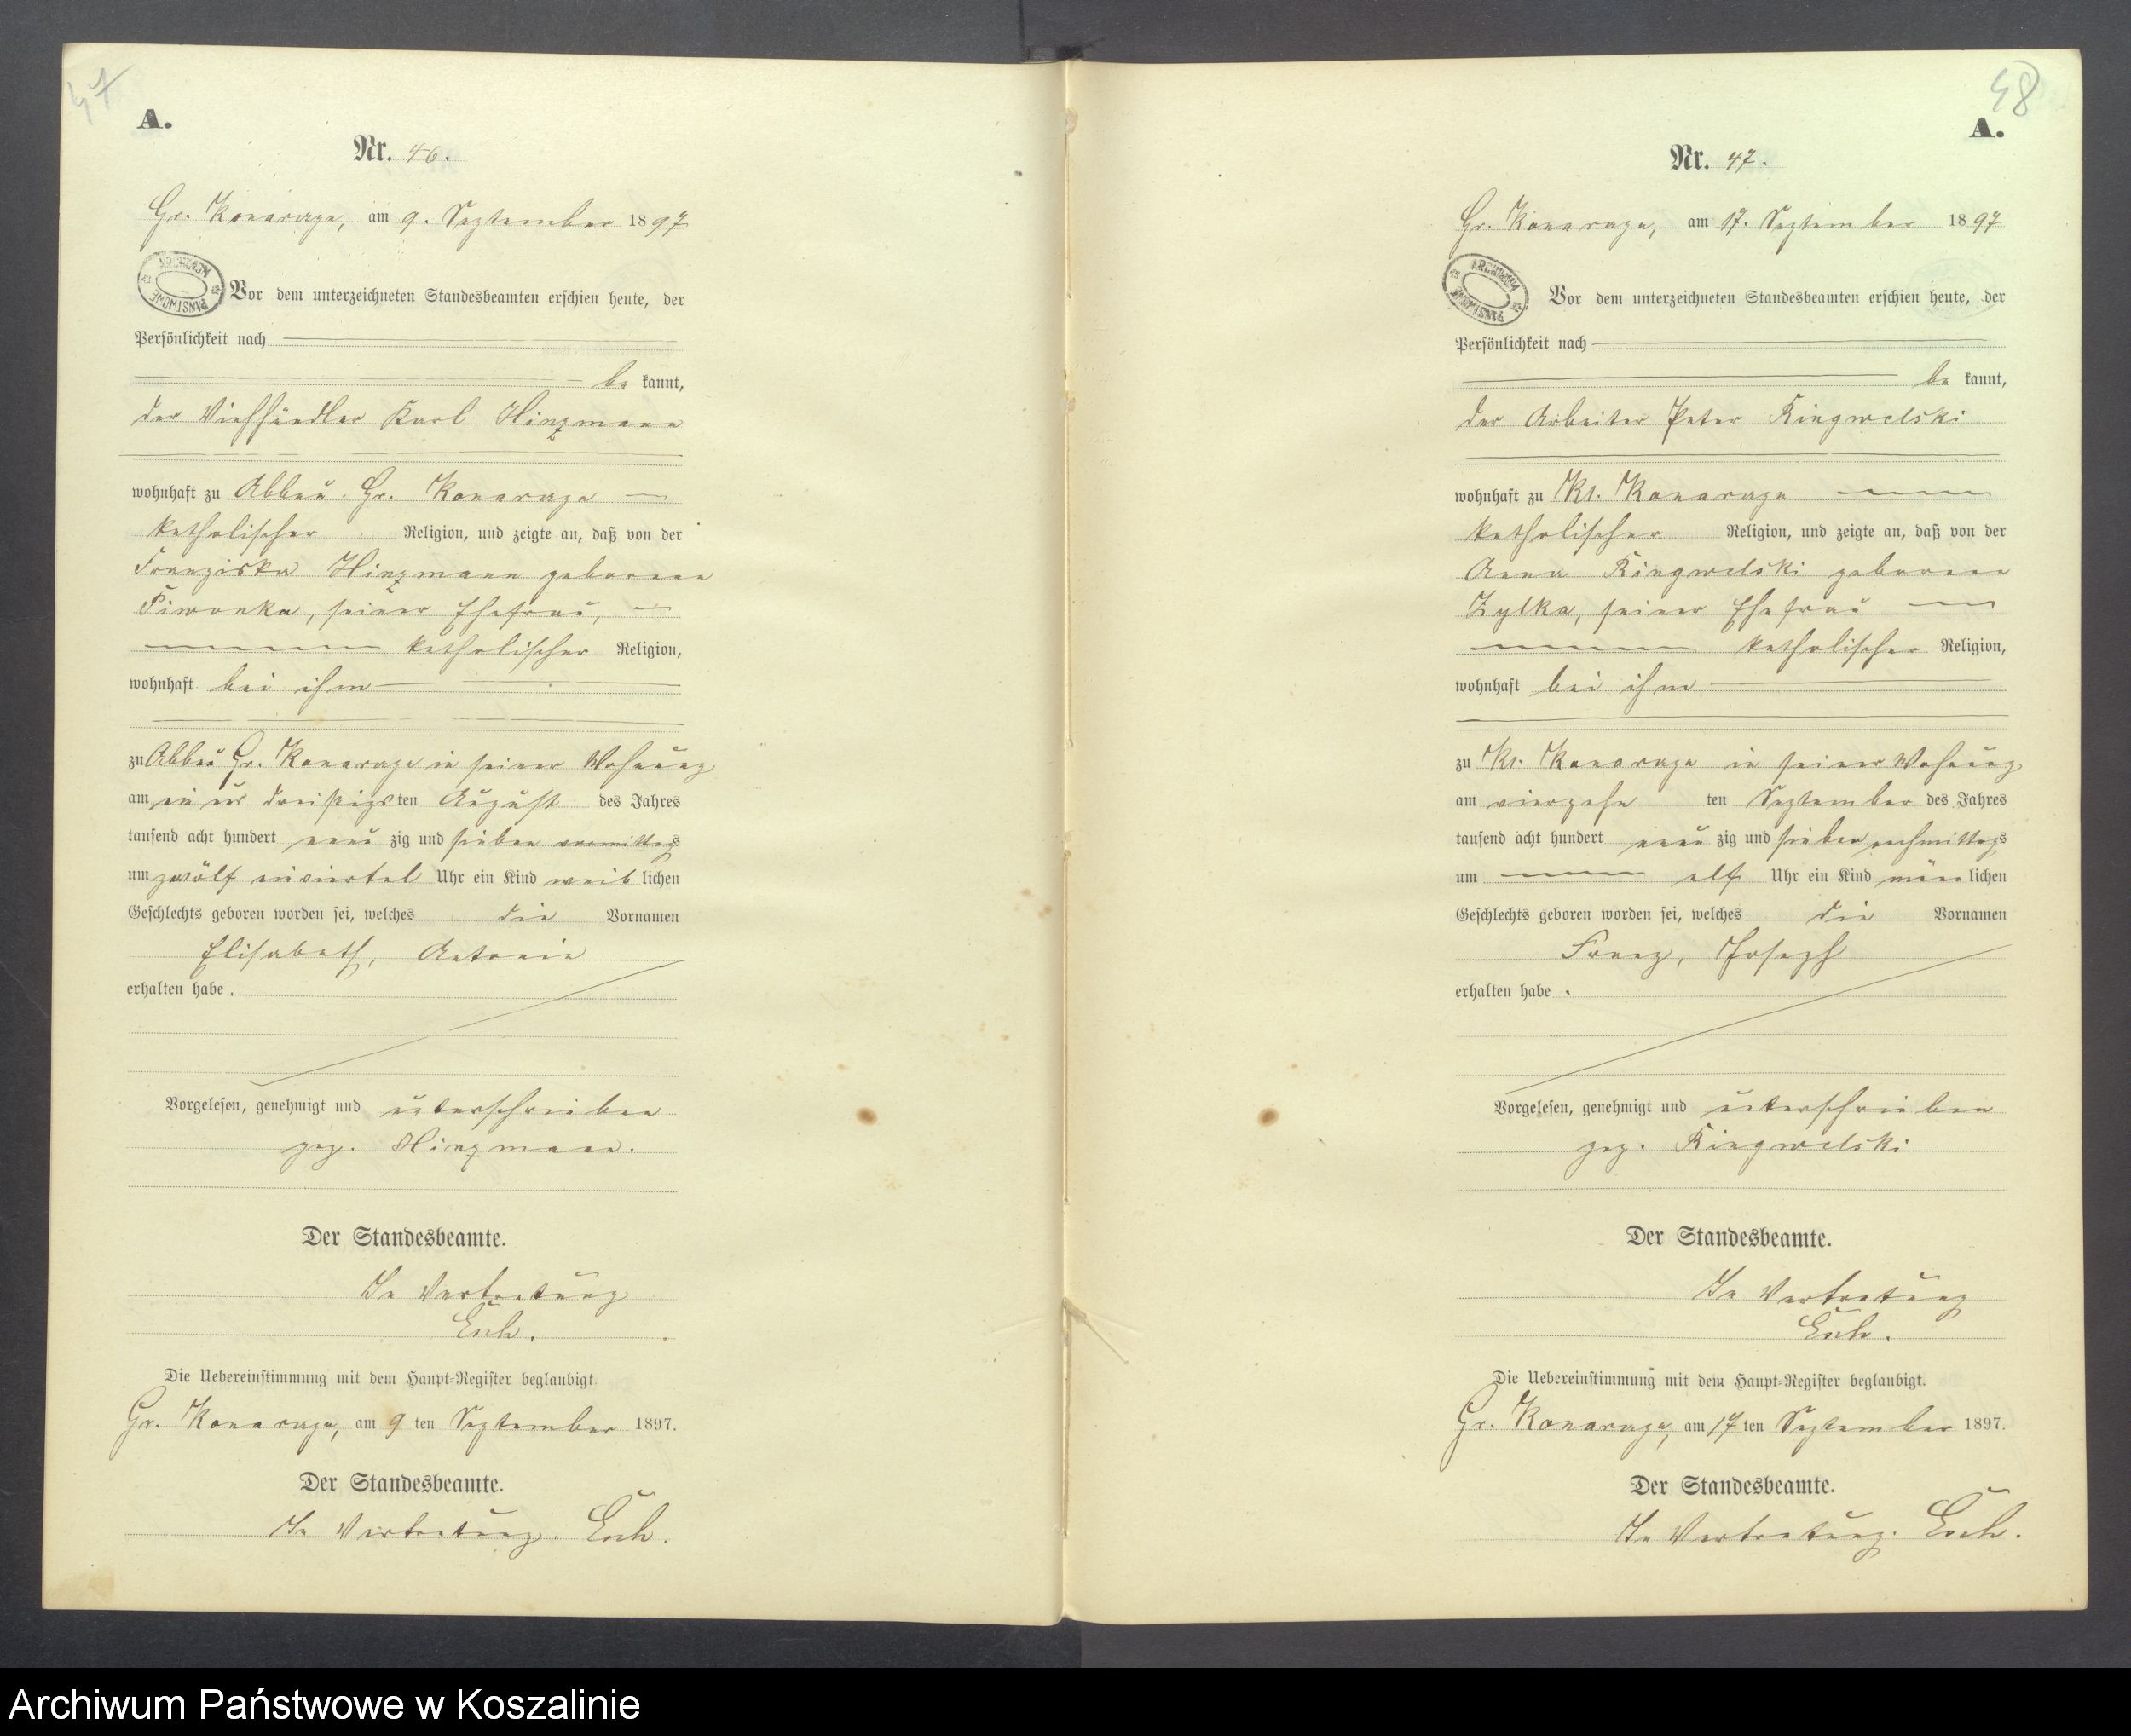 47
A.
Nr. 46.
Gr. Konarczyn, am 9. September 1897
Vor dem unterzeichneten Standesbeamten erschien heute, der
Persönlichkeit nach
be kannt,
der Viehhändler Karl Hinzmann
wohnhaft zu Abbau Gr. Konarczyn
katholischer Religion, und zeigte an, daß von der
Franziska Hinzmann geborenen
Piwonka, seiner Ehefrau,
katholischer Religion,
wohnhaft bei ihm
zu Abbau Gr. Konarczyn in seiner Wohnung
am ein und dreißigsten August des Jahres
tausend acht hundert neun zig und sieben vormittags
um zwölf einviertel Uhr ein Kind weib lichen
Geschlechts geboren worden sei, welches die Vornamen
Elisabeth, Antonie
erhalten habe.
Vorgelesen, genehmigt und unterschrieben
gez. Hinzmann.
Der Standesbeamte.
In Vertretung
Die Uebereinstimmung mit dem Haupt-Register beglaubigt.
Gr. Konarczyn, am 9 ten September 1897.
Der Standesbeamte.
In Vertretung.
48
A.
Nr. 47.
Gr. Konarczyn, am 17. September 1897
ARCHIWUM PAŃSTWOWE
Vor dem unterzeichneten Standesbeamten erschien heute, der
Persönlichkeit nach
be kannt,
der Arbeiter Peter Ringwelski
wohnhaft zu Kl. Konarczyn
katholischer Religion, und zeigte an, daß von der
Anna Ringwelski geborenen
Zylka, seiner Ehefrau
katholischer Religion,
wohnhaft bei ihm
zu Kl. Konarczyn in seiner Wohnung
am vierzehn ten September des Jahres
tausend acht hundert neun zig und sieben nachmittags
um elf Uhr ein Kind männ lichen
Geschlechts geboren worden sei, welches die Vornamen
Franz, Joseph
erhalten habe.
Vorgelesen, genehmigt und unterschrieben
gez. Ringwelski
Der Standesbeamte.
In Vertretung
Die Uebereinstimmung mit dem Haupt-Register beglaubigt.
Gr. Konarczyn, am 17 ten September 1897.
Der Standesbeamte.
In Vertretung.
Archiwum Państwowe w Koszalinie